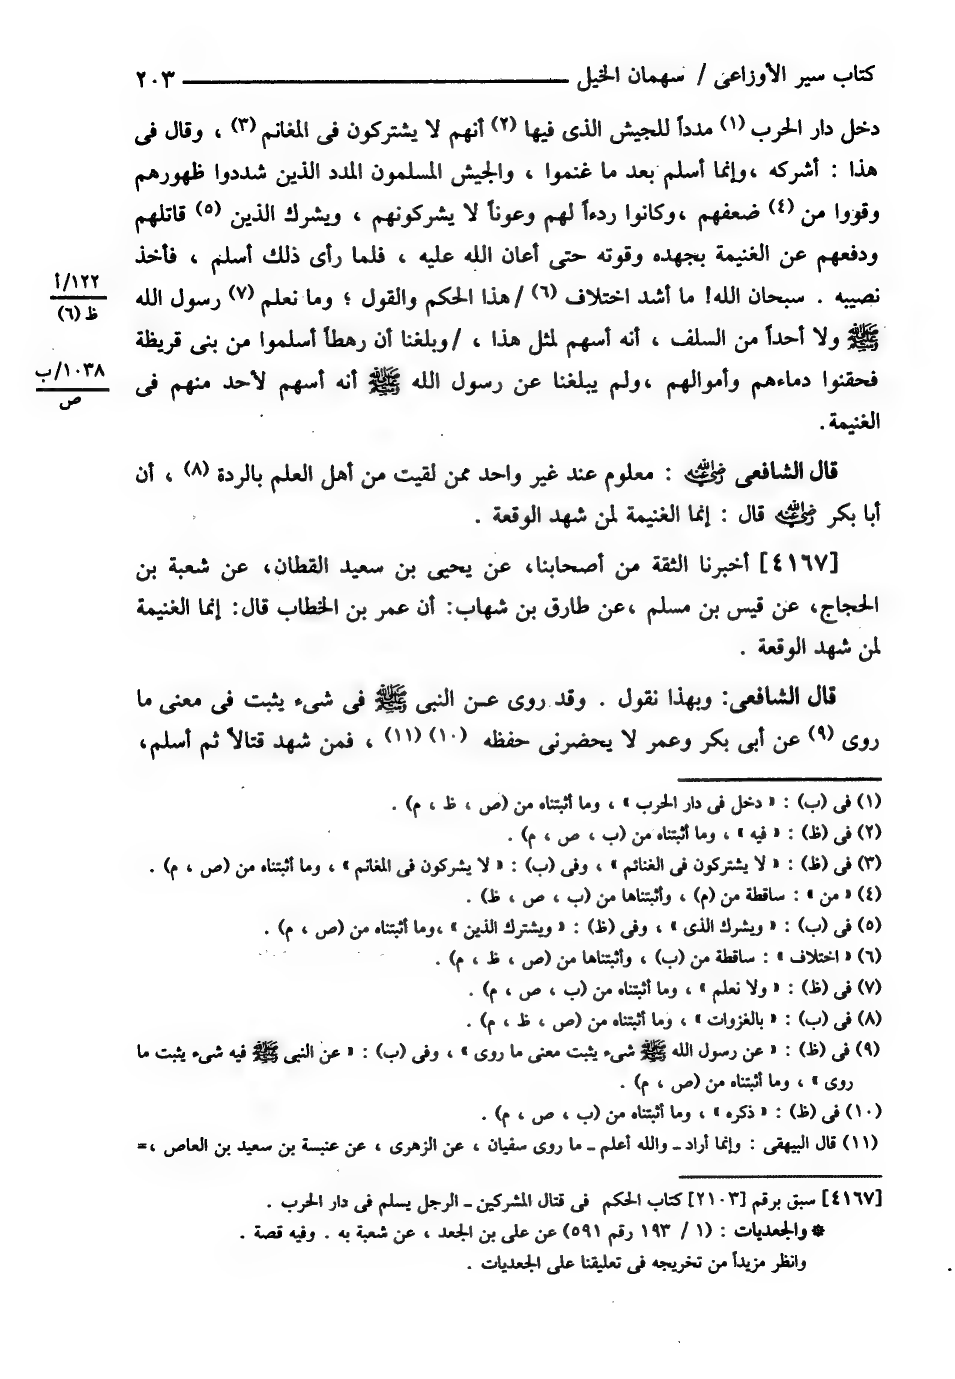 كتاب سير الأوزاعى / سهمان الخيل ــــــ ٢٠٣
دخل دار الحرب (١) مدداً للجيش الذى فيها (٢) أنهم لا يشتركون فى المغانم (٣) ، وقال فى
هذا : أشركه ،وإنما أسلم بعد ما غنموا ، والجيش المسلمون المدد الذين شددوا ظهورهم
وقووا من (٤) ضعفهم ،وكانوا ردءاً لهم وعوناً لا يشركونهم ، ويشرك الذين (٥) قاتلهم
ودفعهم عن الغنيمة بجهده وقوته حتى أعان الله عليه ، فلما رأى ذلك أسلم ، فأخذ
نصيبه . سبحان الله! ما أشد اختلاف (٦) /هذا الحكم والقول ؛ وما نعلم (٧) رسول الله
١٢٢/أ
ظ (٦)
ﷺ ولا أحداً من السلف ، أنه أسهم لمثل هذا ، /وبلغنا أن رهطاً أسلموا من بنى قريظة
فحقنوا دماءهم وأموالهم ،ولم يبلغنا عن رسول الله ﷺ أنه أسهم لأحد منهم فى
١٠٣٨/ب
ص
الغنيمة.
قال الشافعى رضي الله عنه : معلوم عند غير واحد ممن لقيت من أهل العلم بالردة (٨) ، أن
أبا بكر رضي الله عنه قال : إنما الغنيمة لمن شهد الوقعة .
[٤١٦٧] أخبرنا الثقة من أصحابنا، عن يحيى بن سعيد القطان، عن شعبة بن
الحجاج، عن قيس بن مسلم ،عن طارق بن شهاب: أن عمر بن الخطاب قال: إنما الغنيمة
لمن شهد الوقعة .
قال الشافعى: وبهذا نقول . وقد روى عـن النبى ﷺ فى شىء يثبت فى معنى ما
روى (٩) عن أبى بكر وعمر لا يحضرنى حفظه (١٠) (١١) ، فمن شهد قتالاً ثم أسلم،
(١) فى (ب) : « دخل فى دار الحرب » ، وما أثبتناه من (ص ، ظ ، م) .
(٢) فى (ظ) : « فيه » ، وما أثبتناه من (ب ، ص ، م) .
(٣) فى (ظ) : « لا يشتركون فى الغنائم » ، وفى (ب) : « لا يشركون فى المغانم » ، وما أثبتناه من (ص ، م) .
(٤) « من » : ساقطة من (م) ، وأثبتناها من (ب ، ص ، ظ) .
(٥) فى (ب) : « ويشرك الذى » ، وفى (ظ) : « ويشترك الذين » ،وما أثبتناه من (ص ، م) .
(٦) « اختلاف » : ساقطة من (ب) ، وأثبتناها من (ص ، ظ ، م) .
(٧) فى (ظ) : « ولا نعلم » ، وما أثبتناه من (ب ، ص ، م) .
(٨) فى (ب) : « بالغزوات » ، وما أثبتناه من (ص ، ظ ، م) .
(٩) فى (ظ) : « عن رسول الله ﷺ شىء يثبت معنى ما روى » ، وفى (ب) : « عن النبى ﷺ فيه شىء يثبت ما
روى » ، وما أثبتناه من (ص ، م) .
(١٠) فى (ظ) : « ذكره » ، وما أثبتناه من (ب ، ص ، م) .
(١١) قال البيهقى : وإنما أراد ـ والله أعلم ـ ما روى سفيان ، عن الزهرى ، عن عنبسة بن سعيد بن العاص ،=
[٤١٦٧] سبق برقم [٢١٠٣] كتاب الحكم فى قتال المشركين ـ الرجل يسلم فى دار الحرب .
* والجعديات : (١ / ١٩٣ رقم ٥٩١) عن على بن الجعد ، عن شعبة به . وفيه قصة .
وانظر مزيداً من تخريجه فى تعليقنا على الجعديات .